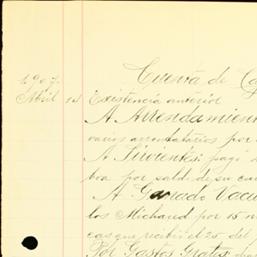 Cuenta de Ca
1907
Abril 1d Existencia anterior
A Arrendamien
varios arrendatarios por
A Sirvientes: pagó
boa por saldo de su cu
A Ganado Vacu
los Michaud por 15 n
cas que recibí el 25 del
Por Gastos Grates